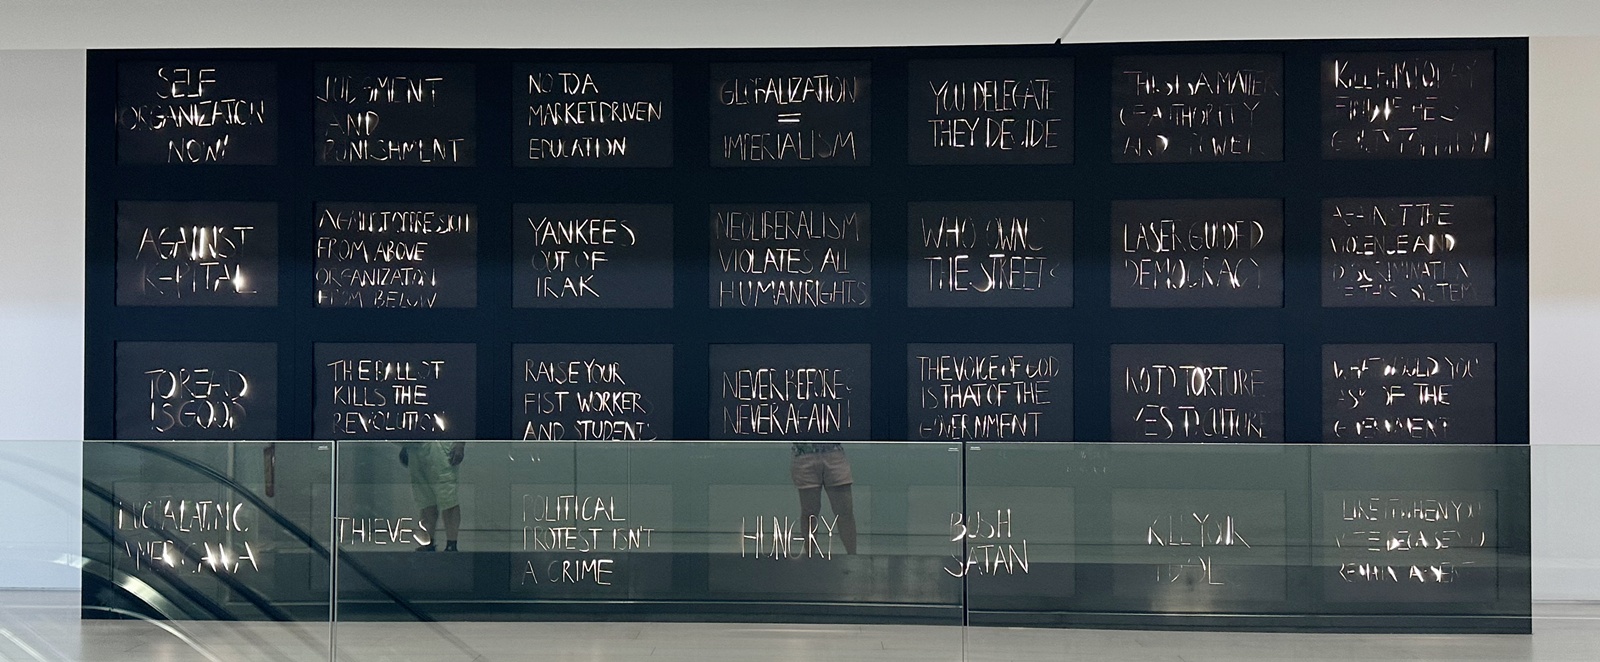 SELF
ORGANIZATION
NOW!
JUDGMENT
AND
PUNISHMENT
NO TO A
MARKET DRIVEN
EDUCATION
GLOBALIZATION
=
IMPERIALISM
YOU DELEGATE
THEY DECIDE
THIS IS A MATTER
OF AUTHORITY
AND POWER
KILL HIM TODAY
AGAINST
KAPITAL
AGAINST OPPRESSION
FROM ABOVE
ORGANIZATION
FROM BELOW
YANKEES
OUT OF
IRAK
NEOLIBERALISM
VIOLATES ALL
HUMAN RIGHTS
WHO OWNS
THE STREETS
LASER GUIDED
DEMOCRACY
AGAINST THE
VIOLENCE AND
DISCRIMINATION
OF THE SYSTEM
TO READ
IS GOOD
THE BALLOT
KILLS THE
REVOLUTION
RAISE YOUR
FIST WORKER
AND STUDENTS
NEVER BEFORE
NEVER AGAIN!
THE VOICE OF GOD
IS THAT OF THE
GOVERNMENT
NO TO TORTURE
YES TO CULTURE
WHAT WOULD YOU
ASK OF THE
GOVERNMENT
LUCHA LATINO
AMERICANA
THIEVES
POLITICAL
PROTEST ISN'T
A CRIME
HUNGRY
BUSH
SATAN
KILL YOUR
IDOL
LIKE IT WHEN YOU